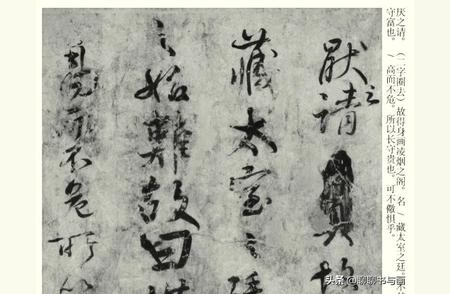 厌之请。（二字圈去）故得身画凌烟之阁。名／藏太室之廷。
守富也。／高而不危。所以长守贵也。可不儆惧乎。
厭之請
藏太室之廷
之始難故曰
而不危所以
头条 @聊聊书与画